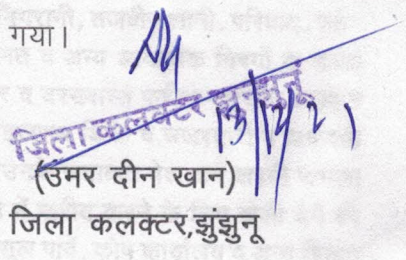 गया।
जिला कलक्टर झुन्झुनूं
13/12/21
(उमर दीन खान)
जिला कलक्टर,झुंझुनू